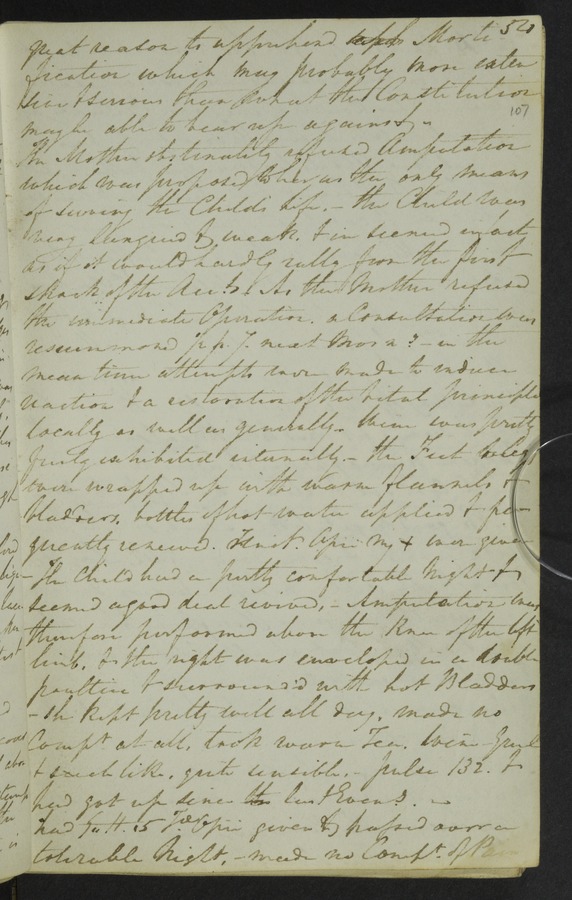 great reason to apprehend Morti 52
fication which may probably more exten
sive & serious than what the Constitution 107
may be able to bear up against. -
The Mother obstinately refused Amputation
which was proposed to her as the only means
of saving the Child's life. - the Child was
very languid & weak, & in seemed in fact
as if it would hardly rally from the first
shock of the Accid. As the Mother refused
the immediate Operation, a Consultation was
resummoned next Morn.g - in the
mean time attempts were made to induce
reaction & a restoration of the vital principle
locally as well as generally. Wine was pretty
freely exhibited internally. - the Feet & legs
were wrapped up with warm flannels &
bladders, bottles of hot water applied & fre-
quently renewed. Tinct. Opii were given
- The Child had a pretty comfortable Night &
seemed a good deal revived, - Amputation was
therefore performed above the Knee of the left
limb, & the right was enveloped in a double
poultice & surrounded with hot Bladders
- She kept pretty well all day, made no
Compt at all, took warm Tea, Wine Gruel
& such like, quite sensible. - pulse 132. &
had got up since the last Even.g. -
had 5 opii given & passed over a
tolerable Night, - made no Compt. of